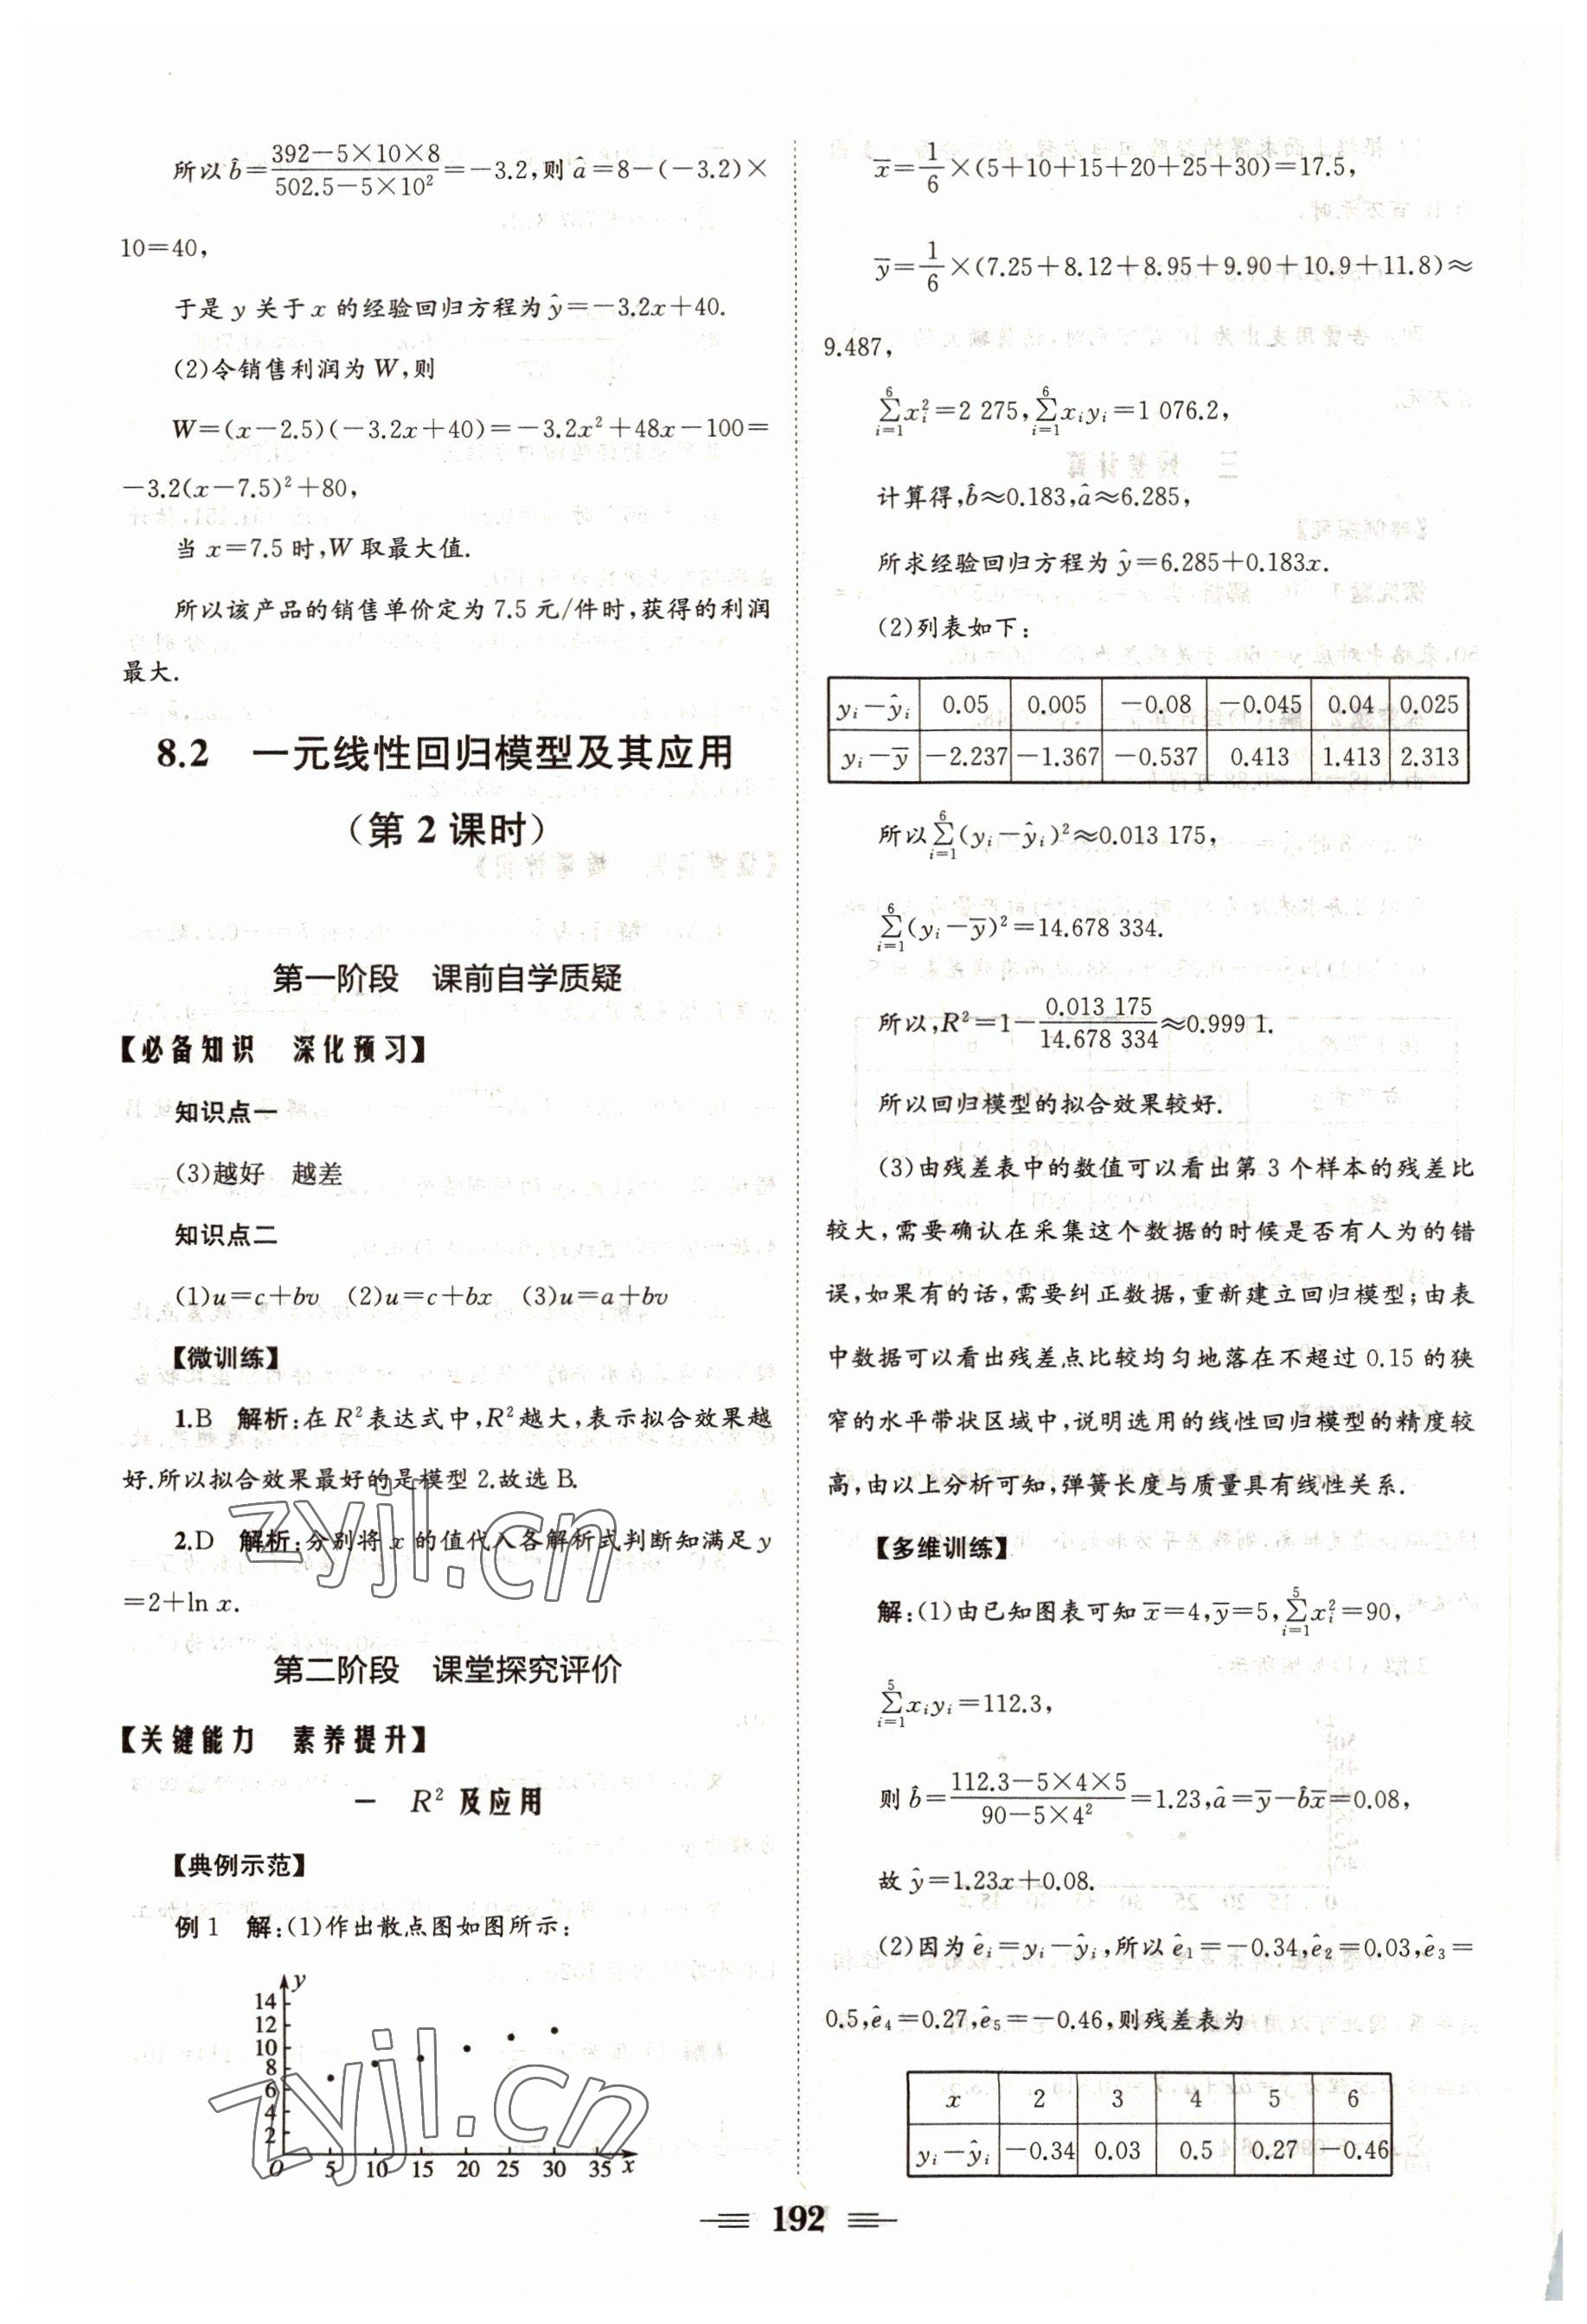 所以b̂=(392-5×10×8)/(502.5-5×10²)=-3.2,则â=8-(-3.2)×
10=40,
于是 y 关于 x 的经验回归方程为ŷ=-3.2x+40.
(2)令销售利润为 W,则
W=(x-2.5)(-3.2x+40)=-3.2x²+48x-100=
-3.2(x-7.5)²+80,
当 x=7.5 时,W 取最大值.
所以该产品的销售单价定为 7.5 元/件时,获得的利润
最大.
8.2 一元线性回归模型及其应用
(第 2 课时)
第一阶段 课前自学质疑
【必备知识 深化预习】
知识点一
(3)越好 越差
知识点二
(1)u=c+bv (2)u=c+bx (3)u=a+bv
【微训练】
1.B 解析:在 R²表达式中,R²越大,表示拟合效果越
好.所以拟合效果最好的是模型 2.故选 B.
2.D 解析:分别将 x 的值代入各解析式判断知满足 y
=2+ln x.
第二阶段 课堂探究评价
【关键能力 素养提升】
一 R² 及应用
【典例示范】
例 1 解:(1)作出散点图如图所示:
y
14
12
10
8
6
4
2
O 5 10 15 20 25 30 35 x
x̄=1/6×(5+10+15+20+25+30)=17.5,
ȳ=1/6×(7.25+8.12+8.95+9.90+10.9+11.8)≈
9.487,
∑(i=1→6)xᵢ²=2 275,∑(i=1→6)xᵢyᵢ=1 076.2,
计算得,b̂≈0.183,â≈6.285,
所求经验回归方程为 ŷ=6.285+0.183x.
(2)列表如下:
yᵢ-ŷᵢ 0.05 0.005 -0.08 -0.045 0.04 0.025
yᵢ-ȳ -2.237 -1.367 -0.537 0.413 1.413 2.313
所以∑(i=1→6)(yᵢ-ŷᵢ)²≈0.013 175,
∑(i=1→6)(yᵢ-ȳ)²=14.678 334.
所以,R²=1-0.013 175/14.678 334≈0.999 1.
所以回归模型的拟合效果较好.
(3)由残差表中的数值可以看出第 3 个样本的残差比
较大,需要确认在采集这个数据的时候是否有人为的错
误,如果有的话,需要纠正数据,重新建立回归模型;由表
中数据可以看出残差点比较均匀地落在不超过 0.15 的狭
窄的水平带状区域中,说明选用的线性回归模型的精度较
高,由以上分析可知,弹簧长度与质量具有线性关系.
【多维训练】
解:(1)由已知图表可知 x̄=4,ȳ=5,∑(i=1→5)xᵢ²=90,
∑(i=1→5)xᵢyᵢ=112.3,
则 b̂=(112.3-5×4×5)/(90-5×4²)=1.23,â=ȳ-b̂x̄=0.08,
故 ŷ=1.23x+0.08.
(2)因为 êᵢ=yᵢ-ŷᵢ,所以 ê₁=-0.34,ê₂=0.03,ê₃=
0.5,ê₄=0.27,ê₅=-0.46,则残差表为
x 2 3 4 5 6
yᵢ-ŷᵢ -0.34 0.03 0.5 0.27 -0.46
192
zyjl.cn
zyjl.cn